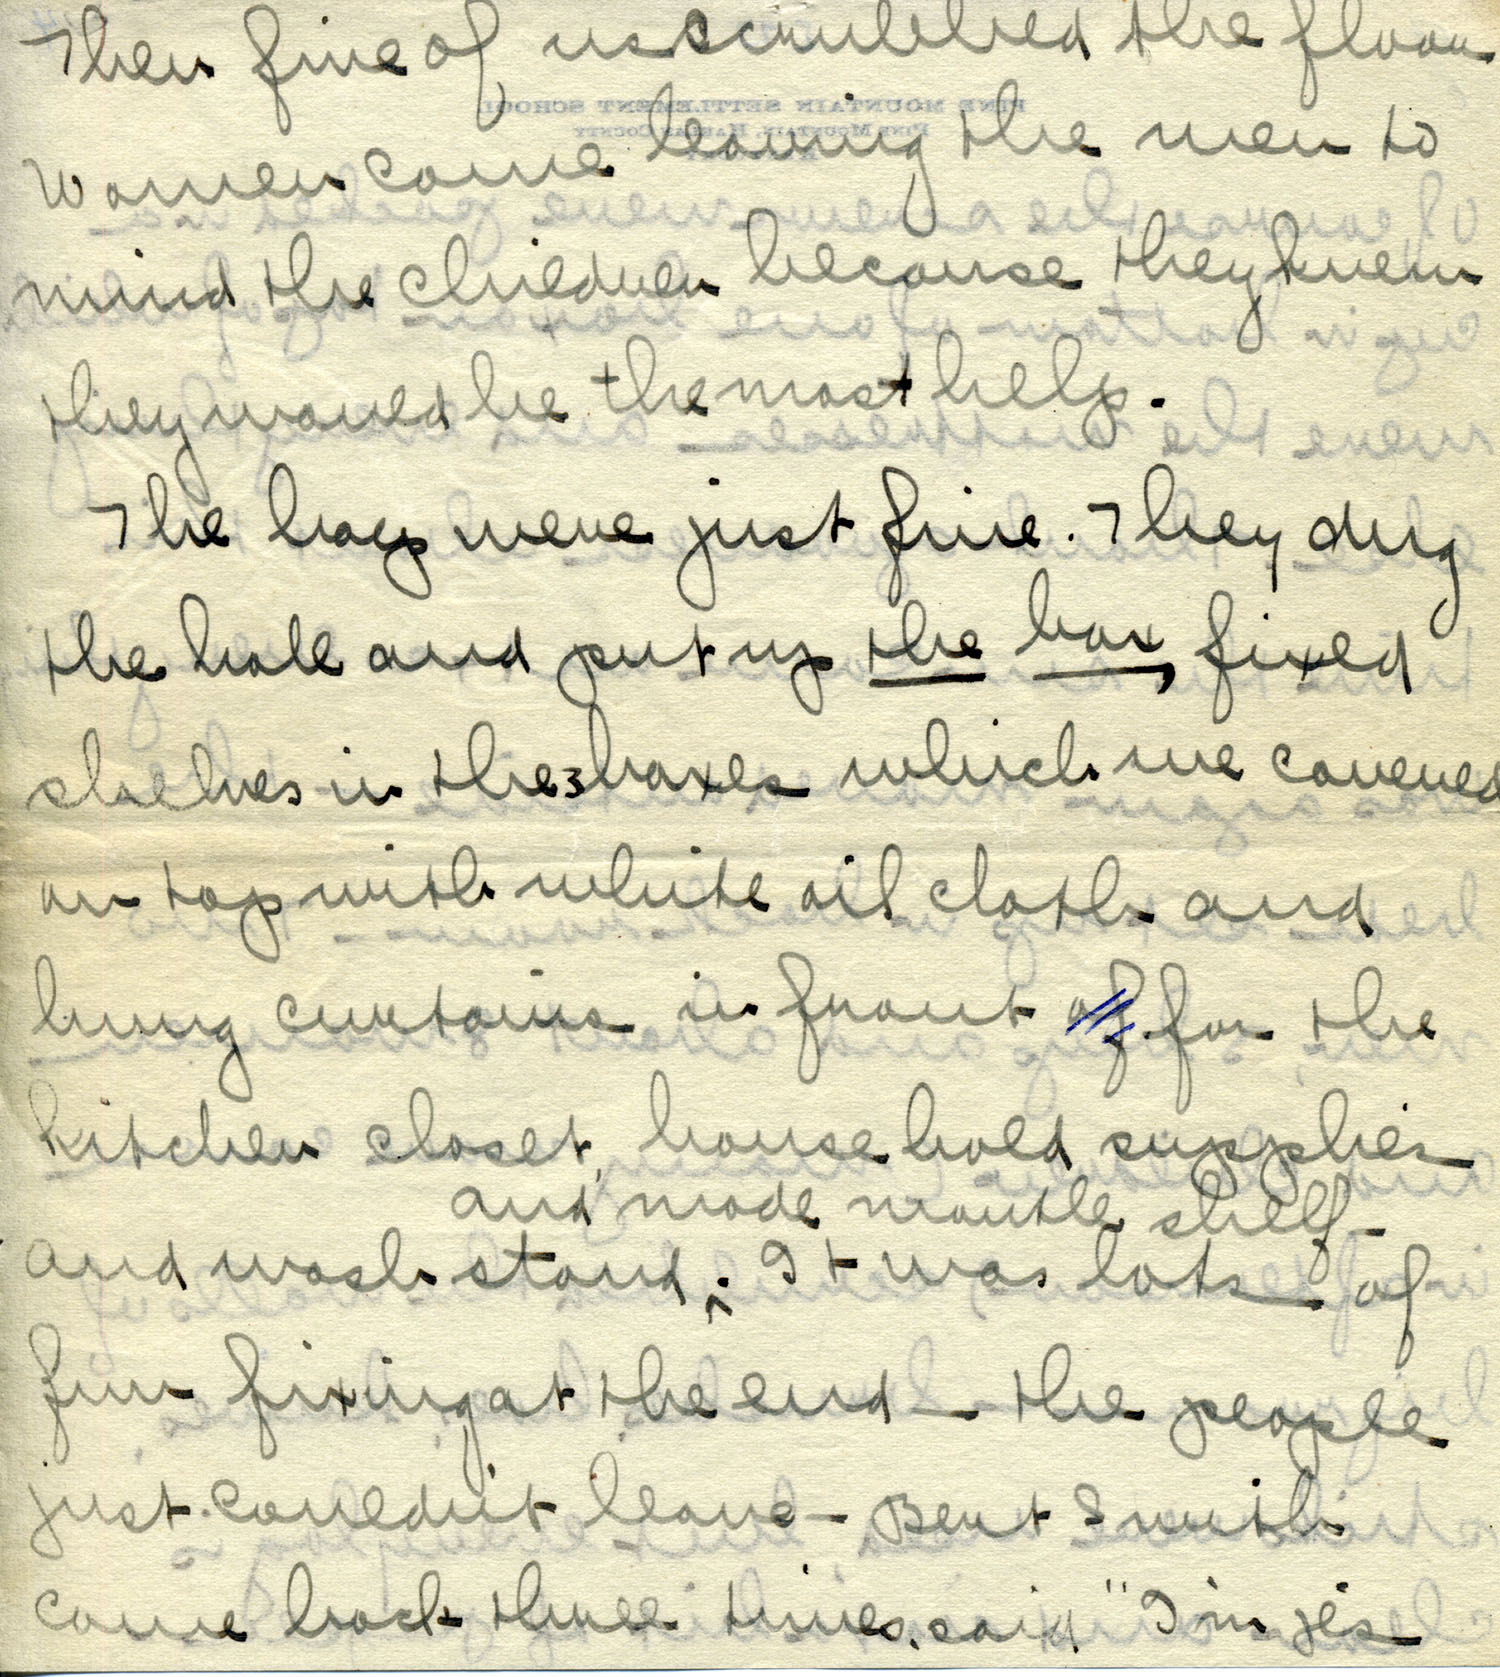 Then five of us scrubbed the floor
Women came leaving the men to
mind the children because they knew
they would be the most help.
The boys were just fine. They dug
the hole and put up the box, fixed
shelves in the 3 boxes which we covered
on top with white oil cloth and
hung curtains in front of for the
kitchen closet, household supplies
and made mantle shelf -
and wash stand. It was lots of
fun fixing at the end - the people
just couldn't leave - Bent Smith
came back three times, said "I'm jes